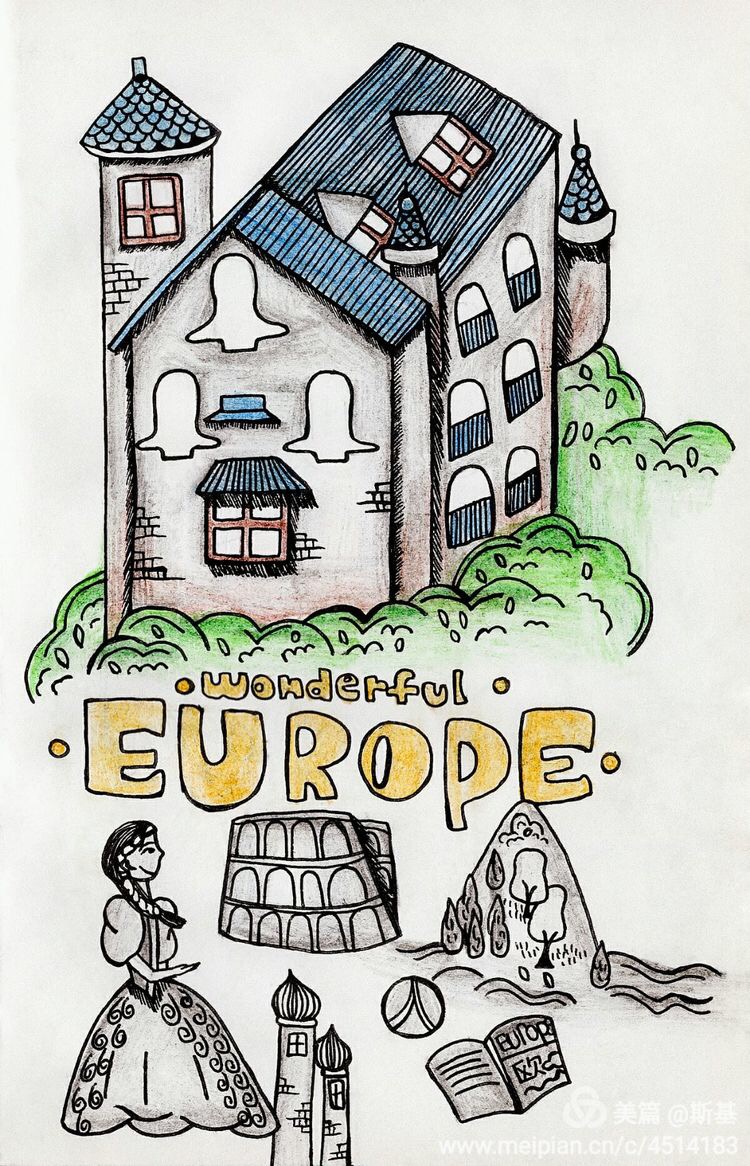 wonderful
EUROPE
EUROPE
欧
美篇 @斯基
www.meipian.cn/c/4514183